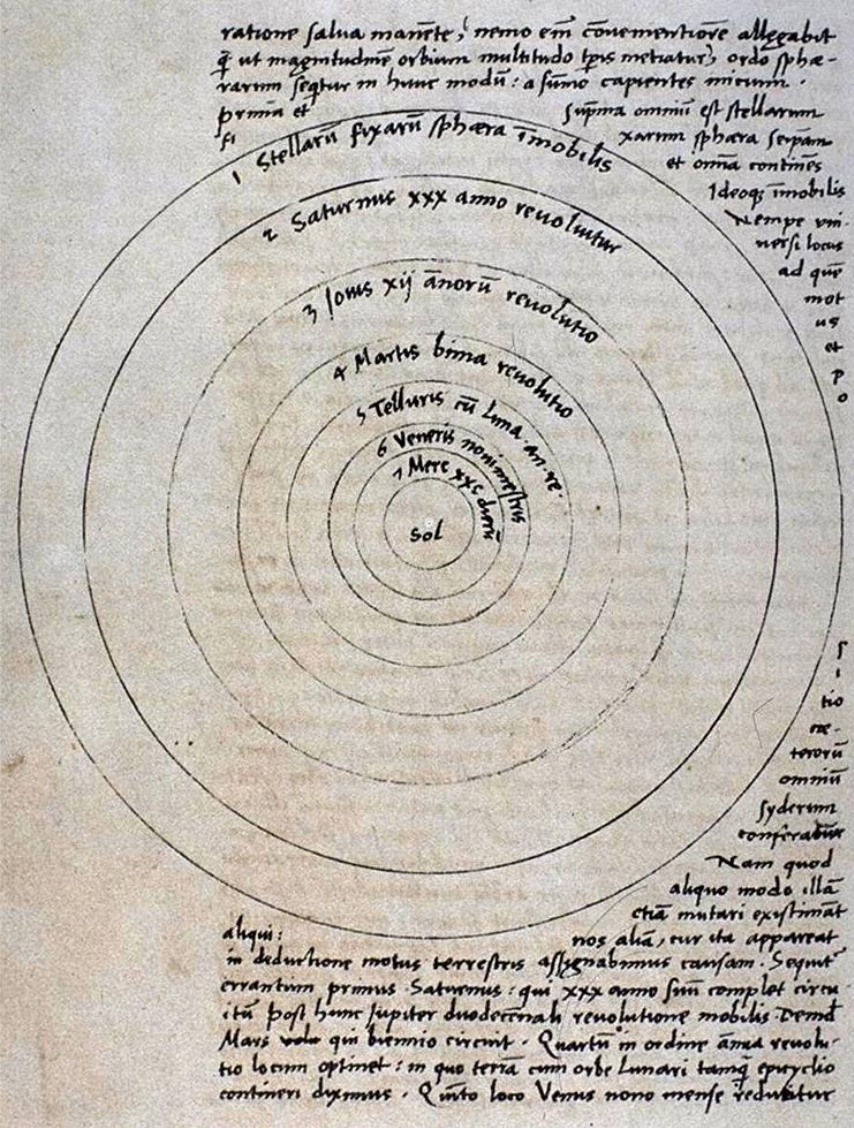 ratione salva manēte, nemo em̄ cōvenientiorē allegabit
q̄ ut magnitudinē orbium multitudo tp̄is metiatur, ordo sphæ-
rarum seq̄tur in hunc modū: a sūmo capientes inicium.
prima et sup̄ma omniū est stellarum
fi xarum sphæra seip̄am
et om̄ia continēs
Ideoq̄ īmobilis
Nempe vni-
versi locus
ad quē
mot
us
et
p
o
1 Stellarū fixarū sphæra īmobilis
2 Saturnus xxx anno revoluitur
3 Jovis xij ānorū revolutio
4 Martis bima revolutio
5 Telluris cū Luna an. re.
6 Veneris nonimestris
7 Merc xxc dierū
Sol
s
i
tio
cæ-
terorū
omniū
syderum
conferatur
Nam quod
aliquo modo illā
etiā mutari existimāt
aliqui: nos aliā, cur ita appareat
in deductione motus terrestris assignabimus causam. Sequit̄
errantium primus Saturnus: qui xxx anno suū complet circu
itū Post hunc Jupiter duodecēnali revolutione mobilis Deind
Mars qui biennio circuit. Quartū in ordine ānua revolu-
tio locum optinet: in quo terrā cum orbe Lunari tamq̄ epicyclio
contineri diximus. Quīto loco Venus nono mense reducitur